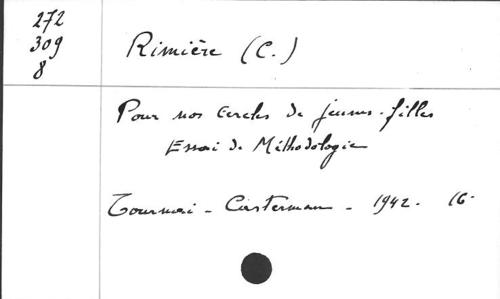 272
309
8
Rimière (C.)
Pour nos cercles de jeunes-filles
Essai de Méthodologie
Tournai - Casterman - 1942. 16.